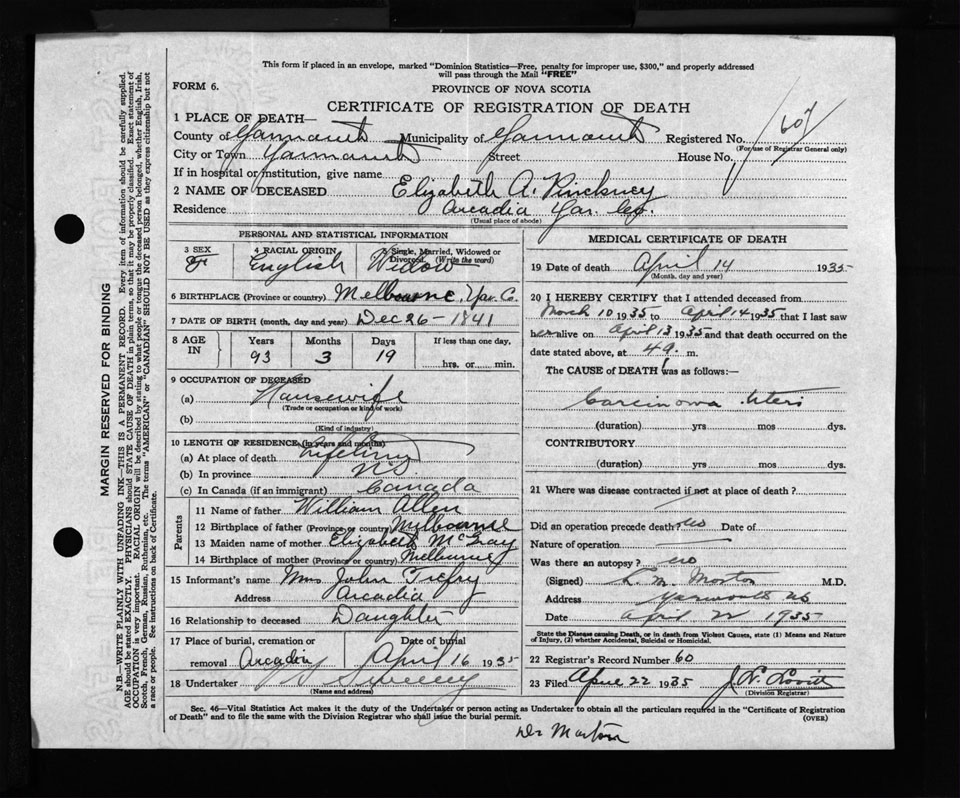 This form if placed in an envelope, marked "Dominion Statistics—Free, penalty for improper use, $300," and properly addressed
will pass through the Mail "FREE"
FORM 6.
PROVINCE OF NOVA SCOTIA
CERTIFICATE OF REGISTRATION OF DEATH
1 PLACE OF DEATH—
County of Yarmouth Municipality of Yarmouth Registered No. 607
(For use of Registrar General only)
City or Town Yarmouth Street House No.
If in hospital or institution, give name
2 NAME OF DECEASED Elizabeth A. Pinckney
Residence Arcadia Yar. Co.
(Usual place of abode)
PERSONAL AND STATISTICAL INFORMATION
3 SEX F
4 RACIAL ORIGIN English
Single, Married, Widowed or Divorced. (Write the word) Widow
6 BIRTHPLACE (Province or country) Melbourne, Yar. Co.
7 DATE OF BIRTH (month, day and year) Dec 26 - 1841
8 AGE IN Years Months Days If less than one day,
93 3 19 hrs. or min.
9 OCCUPATION OF DECEASED
(a) Housewife
(Trade or occupation or kind of work)
(b)
(Kind of industry)
10 LENGTH OF RESIDENCE (in years and months)
(a) At place of death Lifetime
(b) In province NS
(c) In Canada (if an immigrant) Canada
Parents
11 Name of father William Allen
12 Birthplace of father (Province or country) Melbourne
13 Maiden name of mother Elizabeth McGray
14 Birthplace of mother (Province or country) Melbourne
15 Informant's name Mrs John Trefry
Address Arcadia
16 Relationship to deceased Daughter
17 Place of burial, cremation or removal Arcadia
Date of burial April 16 1935
18 Undertaker Sweeney
(Name and address)
MEDICAL CERTIFICATE OF DEATH
19 Date of death April 14 1935
(Month, day and year)
20 I HEREBY CERTIFY that I attended deceased from
March 10 1935 to April 14 1935 that I last saw
her alive on April 13 1935 and that death occurred on the
date stated above, at 4 a. m.
The CAUSE of DEATH was as follows:—
Carcinoma Uteri
(duration) yrs mos dys.
CONTRIBUTORY
(duration) yrs mos dys.
21 Where was disease contracted if not at place of death?
Did an operation precede death? no Date of
Nature of operation
Was there an autopsy? no
(Signed) L. M. Morton M.D.
Address Yarmouth NS
Date April 22 1935
State the Disease causing Death, or in death from Violent Causes, state (1) Means and Nature
of Injury, (2) whether Accidental, Suicidal or Homicidal.
22 Registrar's Record Number 60
23 Filed April 22 1935 J. N. Lovitt
(Division Registrar)
Sec. 46—Vital Statistics Act makes it the duty of the Undertaker or person acting as Undertaker to obtain all the particulars required in the "Certificate of Registration
of Death" and to file the same with the Division Registrar who shall issue the burial permit. (OVER)
Dr Morton
MARGIN RESERVED FOR BINDING
N.B.—WRITE PLAINLY WITH UNFADING INK—THIS IS A PERMANENT RECORD. Every item of information should be carefully supplied.
AGE should be stated EXACTLY. PHYSICIANS should STATE CAUSE OF DEATH in plain terms, so that it may be properly classified. Exact statement of
OCCUPATION is very important. RACIAL ORIGIN will be described by stating to what people or tongue the deceased person belonged, whether English, Irish,
Scotch, French, German, Russian, Ruthenian, etc. The terms "AMERICAN" or "CANADIAN" SHOULD NOT BE USED as they express citizenship but not
a race or people. See instructions on back of Certificate.